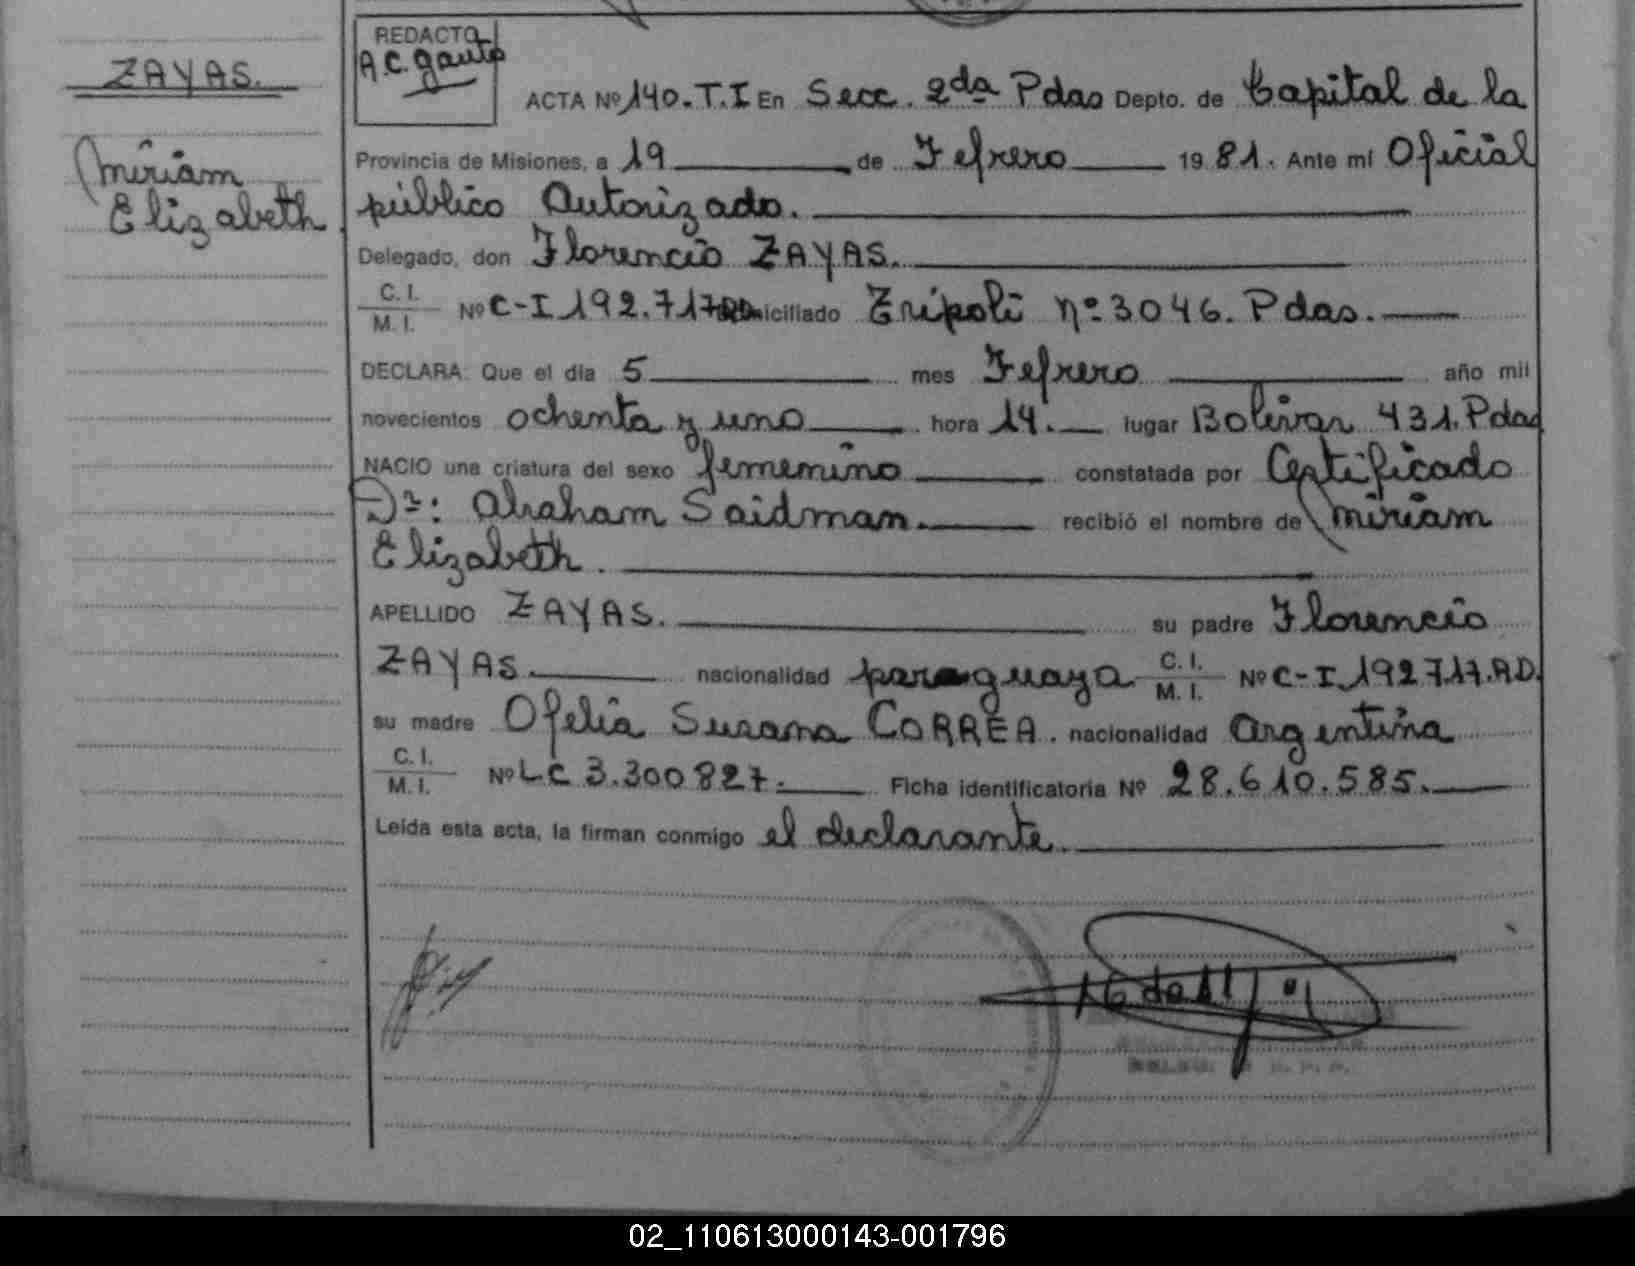 ZAYAS.
Miriam
Elizabeth.
REDACTO
A.C. Gauto
ACTA Nº 140.T.I En Secc. 2da Pdas Depto. de Capital de la
Provincia de Misiones, a 19 de Fefrero 1981. Ante mí Oficial
público Autorizado.
Delegado, don Florencio ZAYAS.
C. I.
M. I.
Nº C-I 192.717 domiciliado Tripoli Nº 3046. Pdas.
DECLARA: Que el día 5 mes Fefrero año mil
novecientos ochenta y uno hora 14. lugar Bolivar 431. Pdas
NACIO una criatura del sexo femenino constatada por Certificado
Dr: Abraham Saidman. recibió el nombre de Miriam
Elizabeth.
APELLIDO ZAYAS. su padre Florencio
ZAYAS. nacionalidad paraguaya C. I. M. I. Nº C-I 192717.AD.
su madre Ofelia Susana CORREA. nacionalidad Argentina
C. I.
M. I.
Nº LC 3.300827. Ficha identificatoria Nº 28.610.585.
Leída esta acta, la firman conmigo el declarante.
02_110613000143-001796